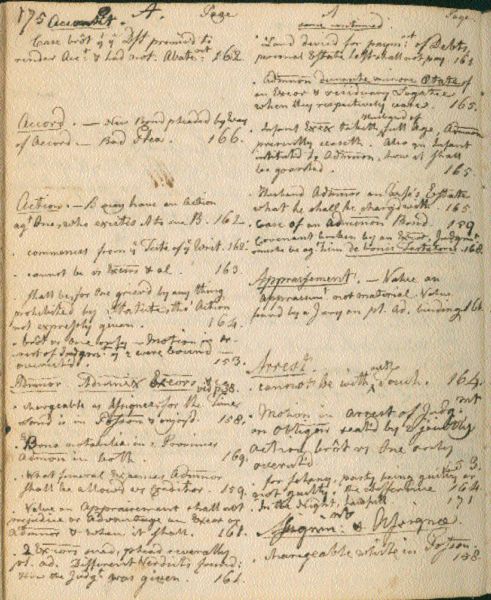 175 Account. A. Page
Case brôt by ye Dft promised to
render Acct & had not. Abatemt 162.
Accord. — New Bond pleaded by Way
of Accord — Bad Plea. 166.
Action. — B may have an Action
agt One who excites A to sue B. 162.
commences from ye Teste of ye Writ. 162.
cannot be vs Excors & al. 163.
shall be for One grieved by any thing
prohibited by Statute, tho' Action
not expressly given. 164.
brôt vs One only — Motion in ar-
rest of Judgmt yt 2 were bound —
overruled. 153.
Admor Admirix Excors vid p 38.
chargeable as Assignee for the Time
Land is in Posson & enjoyt. 158.
Bona notabilia in 2 Provinces
Admon in both. 169.
What funeral Expences Admor
shall be allowed vs Creditor. 159.
Value in Appraisement shall not
prejudice or Advantage an Excor or
Admor & when it shall. 161.
2 Excors sued, plead severally
pl. ad. Different Verdicts found:
How the Judgt was given. 161.
A Page
came continued.
Land devised for paymt of Debts,
personal Estate left shall not pay 161
Admon durante minore Ætate of
an Excor & residuary Legatee
when they respectively cease. 165.
Infant Exex taketh Husband of full Age, Admon
presently ceaseth. Also an Infant
intitled to Admon, how it shall
be granted. 165.
Husband Admor an Wife's Estate
what he shall be charged with. 165.
Case of an Admion Bond 159
Covenant broken by an Excor, Judgmt
must be agt him de bonis Testatoris 168.
Appraisement. — Value in
Appraisemt not material. Value
found by a Jury on pl. Ad. binding 161.
Arrest.
cannot be with out touch. 164.
Motion in arrest of Judgmt
an Obligor seal'd by 2 jointly
Action brôt vs One only
overruled 153.
for felony, party being guilty or
not guilty, the Difference 164
In the Night, lawful 171
Assignmt & Assignee.
chargeable while in Posson.
158